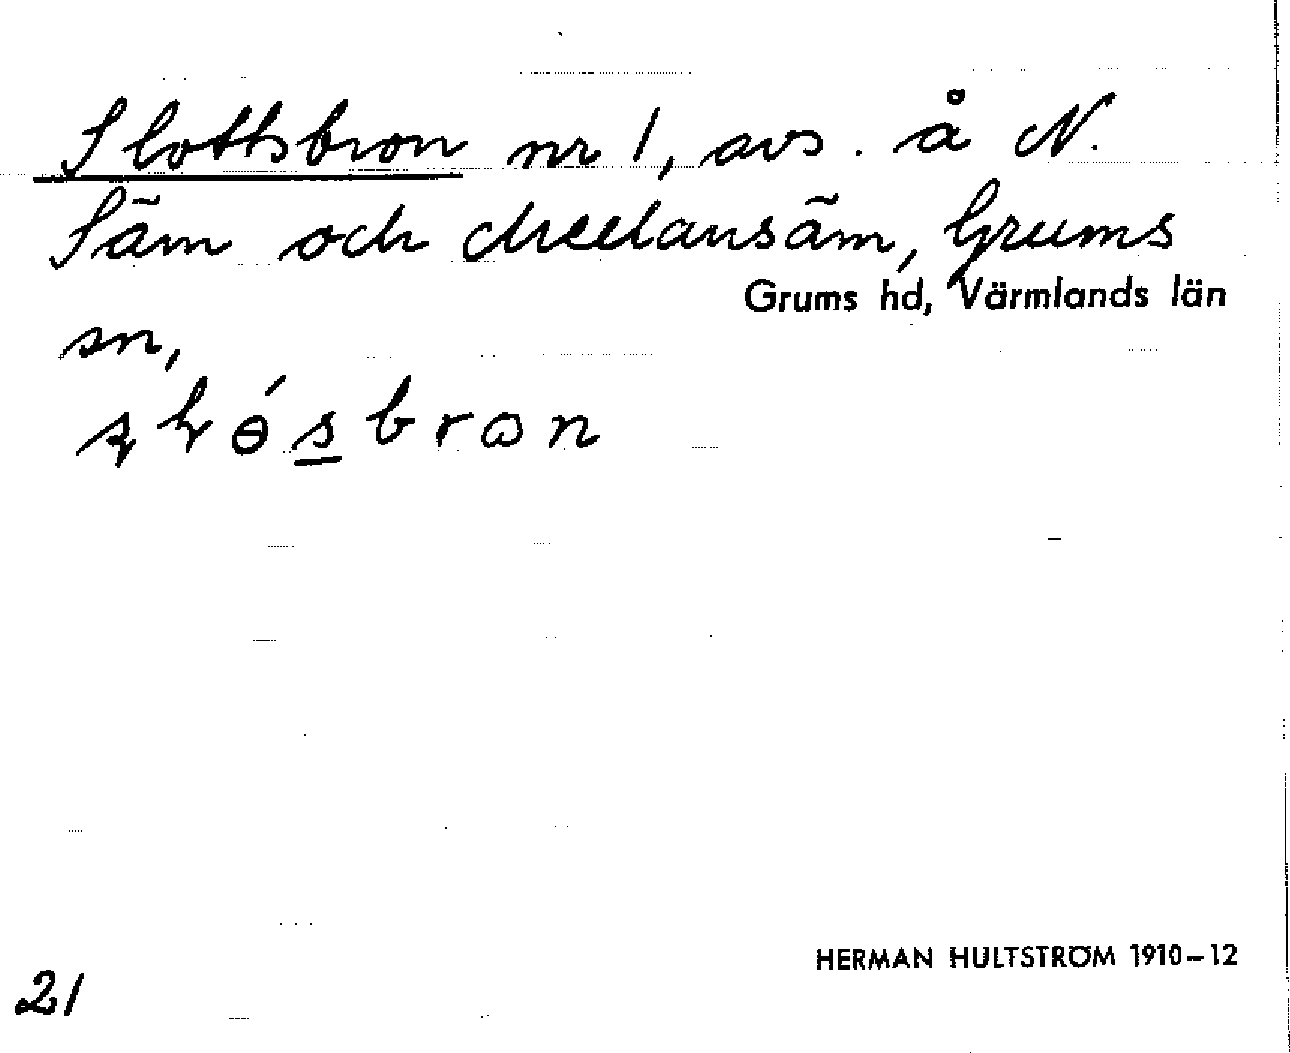 Slottsbron nr 1, avs. å N.
Säm och Mellansäm, Grums
Grums hd, Värmlands län
sn,
HERMAN HULTSTRÖM 1910–12
21